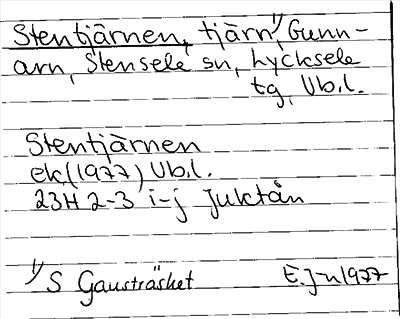 Stentjärnen, tjärn,¹⁾ Gunn-
arn, Stensele sn, Lycksele
tg, Vb.l.
Stentjärnen
ek (1977) Vb.l.
23H 2-3 i-j Juktån
¹⁾ S Gausträsket E.J-n 1977